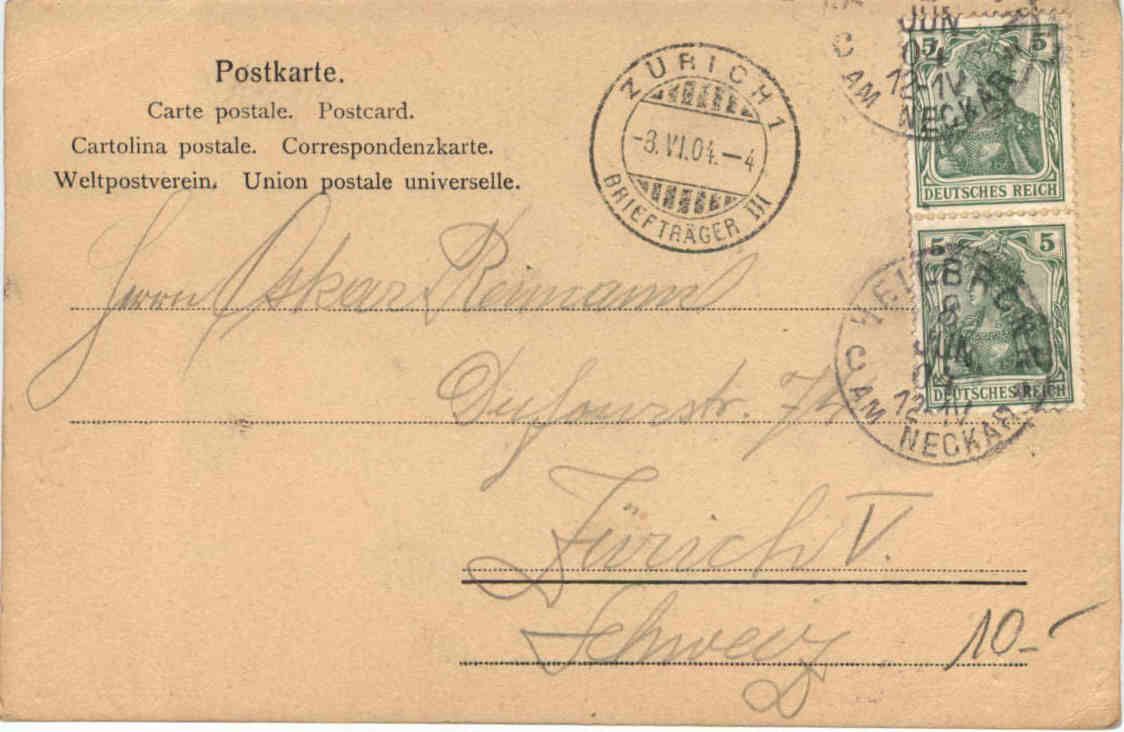 Postkarte.
Carte postale. Postcard.
Cartolina postale. Correspondenzkarte.
Weltpostverein. Union postale universelle.
ZÜRICH 1
-8.VI.04.-4
BRIEFTRÄGER III
JUN
04
12-1V
C AM NECKAR
5 5
DEUTSCHES REICH
5 5
DEUTSCHES REICH
HEILBRONN
8
JUN
04
12-1V
C AM NECKAR
Herrn Oskar Reimann
Dufourstr. 74
Zürich V.
Schweiz
10.-